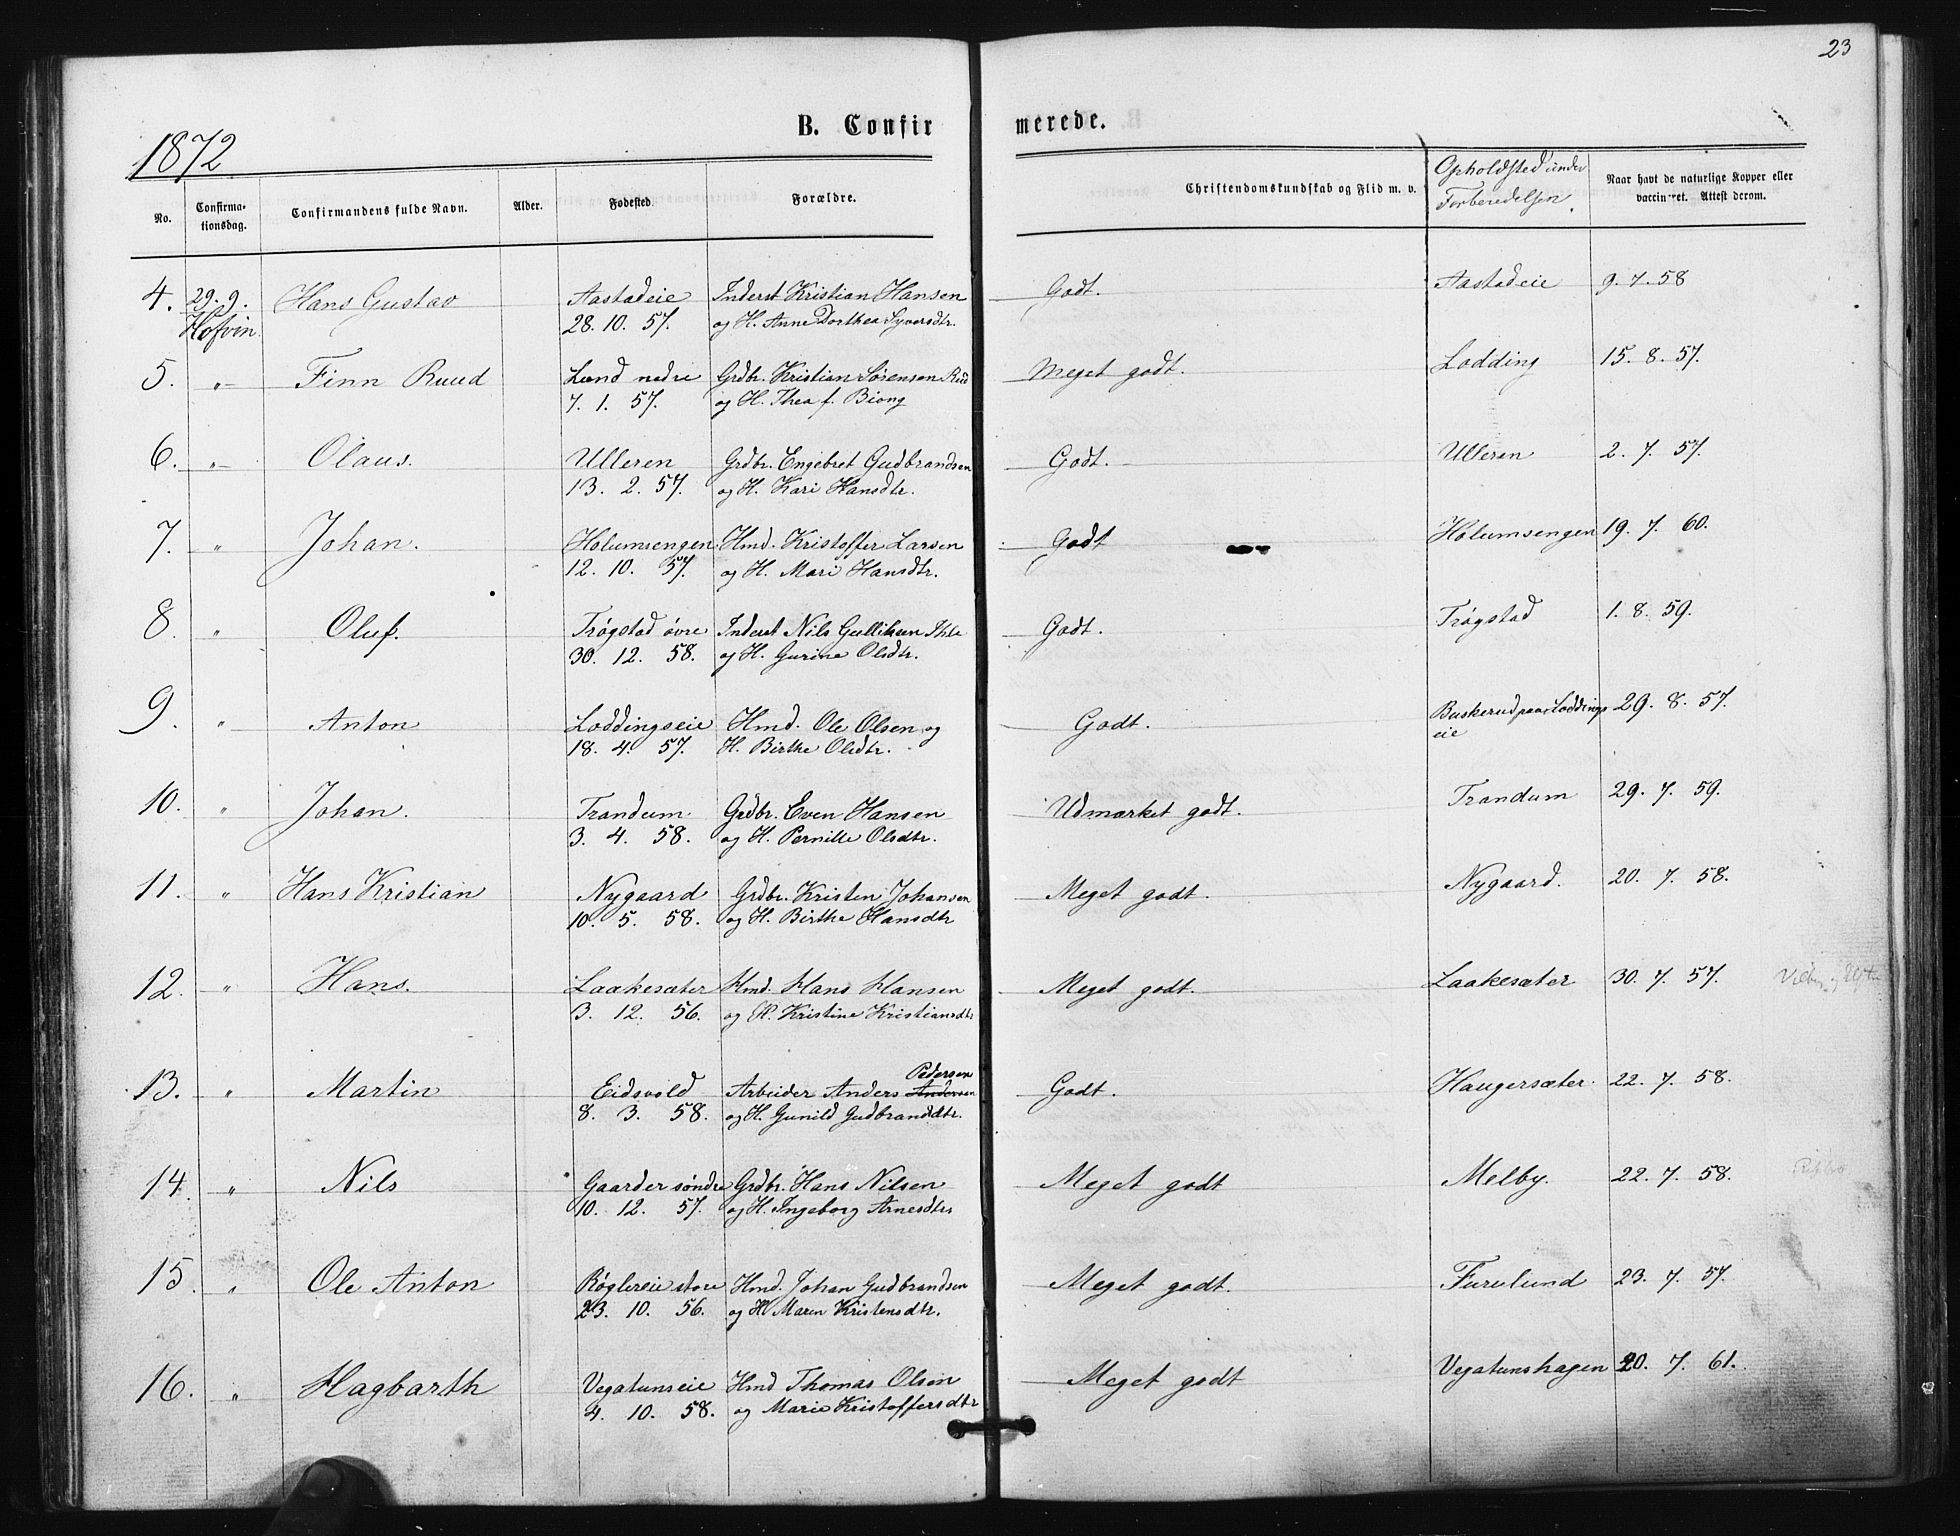 23
1872
B. Confirmerede.
No. Confirmationsdag. Confirmandens fulde Navn. Alder. Fødested. Forældre. Christendomskundskab og Flid m. v. Opholdsted under Forberedelsen. Naar havt de naturlige Kopper eller vaccineret. Attest derom.
4. 29. 9. Hans Gustav Aastadeie Inderst Kristian Hansen Godt. Aastadeie 9. 7. 58
Hofvin 28. 10. 57. og H. Anne Dorthea Syversdtr.
5. " Finn Ruud Lund nedre Grdbr. Kristian Sørensen Ruud Meget godt. Lodding 15. 8. 57.
7. 1. 57. og H. Thea f. Biong
6. " Olaus. Ulleren Grdbr. Engebret Gudbrandsen Godt. Ulleren 2. 7. 57.
13. 2. 57. og H. Kari Hansdtr.
7. " Johan. Holumsengen Hmd. Kristoffer Larsen Godt Holumsengen 19. 7. 60.
12. 10. 57. og H. Mari Hansdtr.
8. " Oluf. Trøgstad øvre Inderst Nils Gulliksen Godt. Trøgstad 1. 8. 59.
30. 12. 58. og H. Gurine Olsdtr.
9. " Anton Loddingseie Hmd. Ole Olsen og Godt. Buskerud paa Loddings 29. 8. 57.
18. 4. 57. H. Birthe Olsdtr. eie
10. " Johan. Trandum Grdbr. Even Hansen Udmærket godt. Trandum 29. 7. 59.
3. 4. 58. og H. Pernille Olsdtr.
11. " Hans Kristian Nygaard Grdbr. Kristen Johansen Meget godt. Nygaard. 20. 7. 58.
10. 5. 58. og H. Birthe Hansdtr
12. " Hans. Laakesæter Hmd. Hans Hansen Meget godt. Laakesæter 30. 7. 57.
3. 12. 56. og H. Kristine Kristiansdtr
Pedersen
13. " Martin Eidsvold Arbeider Anders Andersen Godt. Haugersæter. 22. 7. 58.
8. 3. 58. og H. Gunild Gudbrandsdtr.
14. " Nils Gaarder søndre Grdbr. Hans Nilsen Meget godt Melby. 22. 7. 58.
10. 12. 57. og H. Ingeborg Arnesdtr
15. " Ole Anton Røglereie store Hmd. Johan Gudbrandsen Meget godt. Furulund 23. 7. 57.
23. 10. 56. og H. Maren Kristensdtr.
16. " Hagbarth Vegatunseie Hmd Thomas Olsen Meget godt Vegatunshagen 20. 7. 61.
4. 10. 58. og Marie Kristoffersdtr